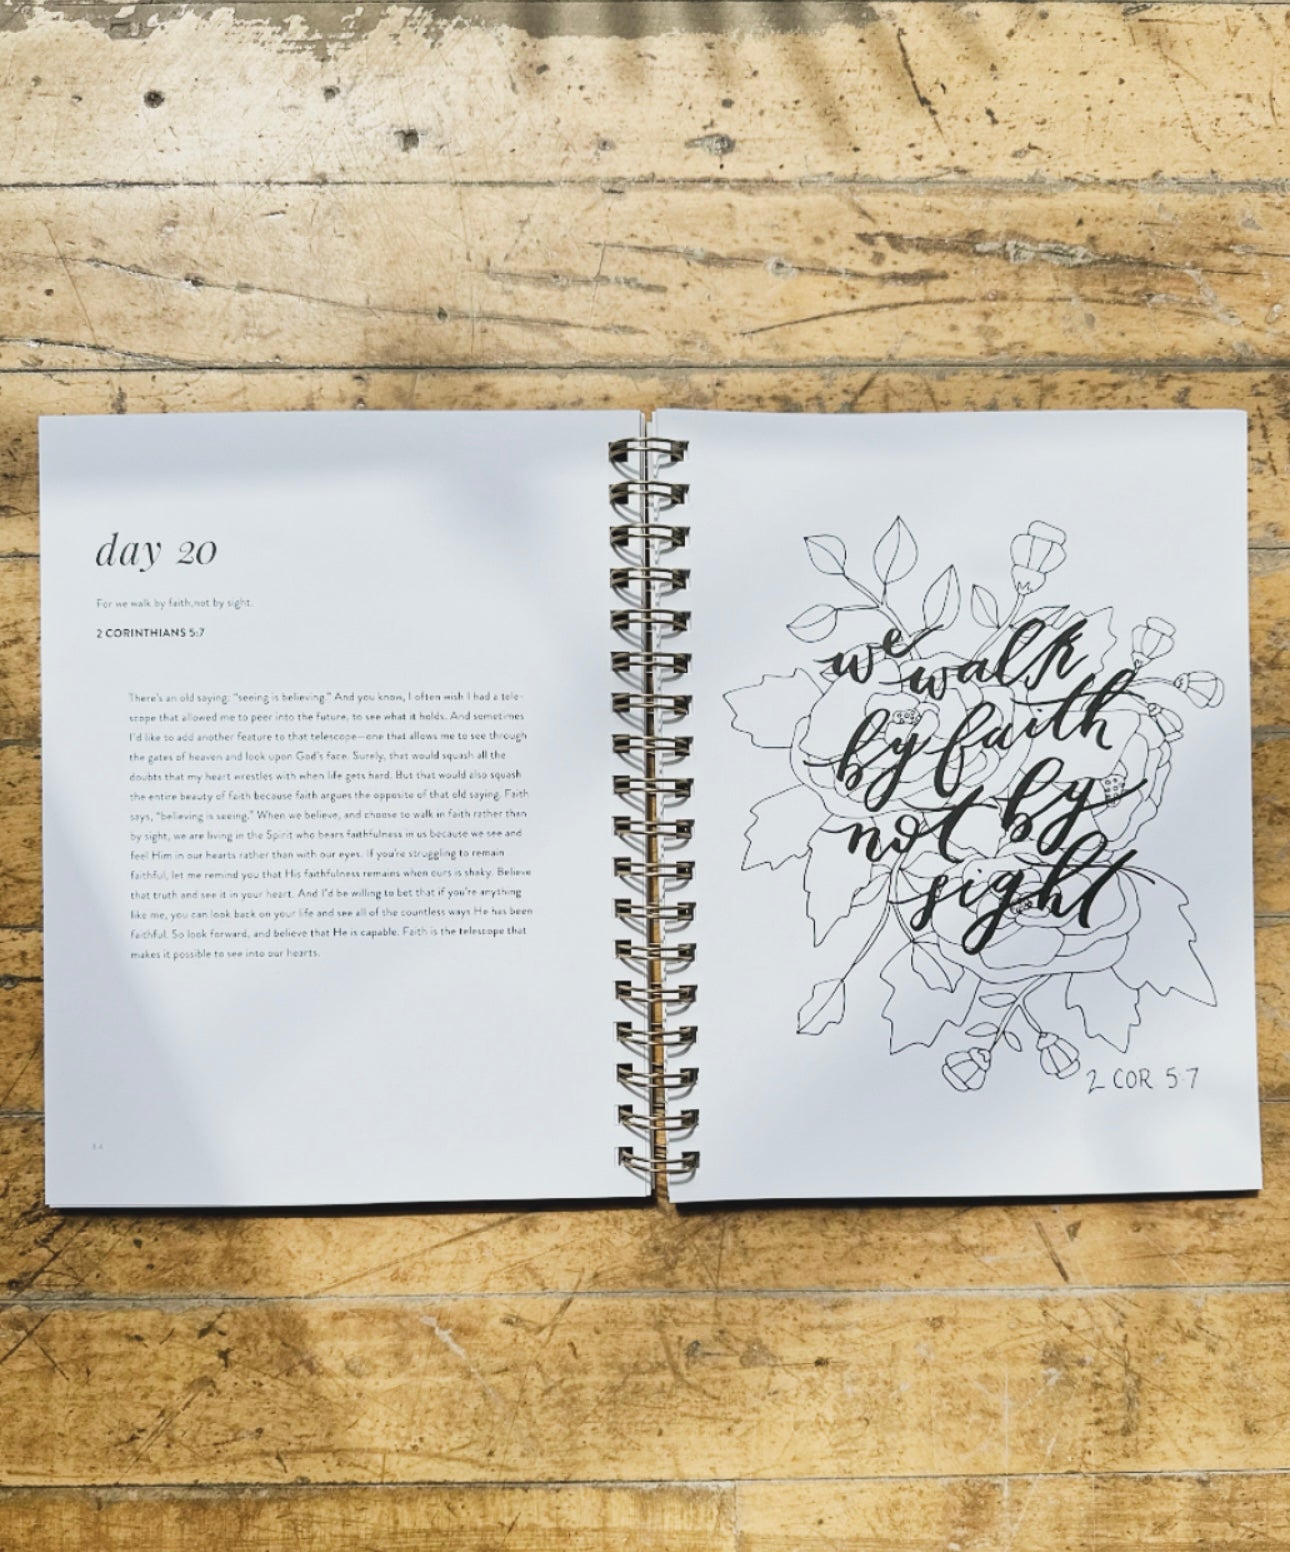 day 20
For we walk by faith,not by sight.
2 CORINTHIANS 5:7
There's an old saying: "seeing is believing." And you know, I often wish I had a tele-
scope that allowed me to peer into the future, to see what it holds. And sometimes
I'd like to add another feature to that telescope—one that allows me to see through
the gates of heaven and look upon God's face. Surely, that would squash all the
doubts that my heart wrestles with when life gets hard. But that would also squash
the entire beauty of faith because faith argues the opposite of that old saying. Faith
says, "believing is seeing." When we believe, and choose to walk in faith rather than
by sight, we are living in the Spirit who bears faithfulness in us because we see and
feel Him in our hearts rather than with our eyes. If you're struggling to remain
faithful, let me remind you that His faithfulness remains when ours is shaky. Believe
that truth and see it in your heart. And I'd be willing to bet that if you're anything
like me, you can look back on your life and see all of the countless ways He has been
faithful. So look forward, and believe that He is capable. Faith is the telescope that
makes it possible to see into our hearts.
we walk
by faith
not by
sight
2 COR 5:7